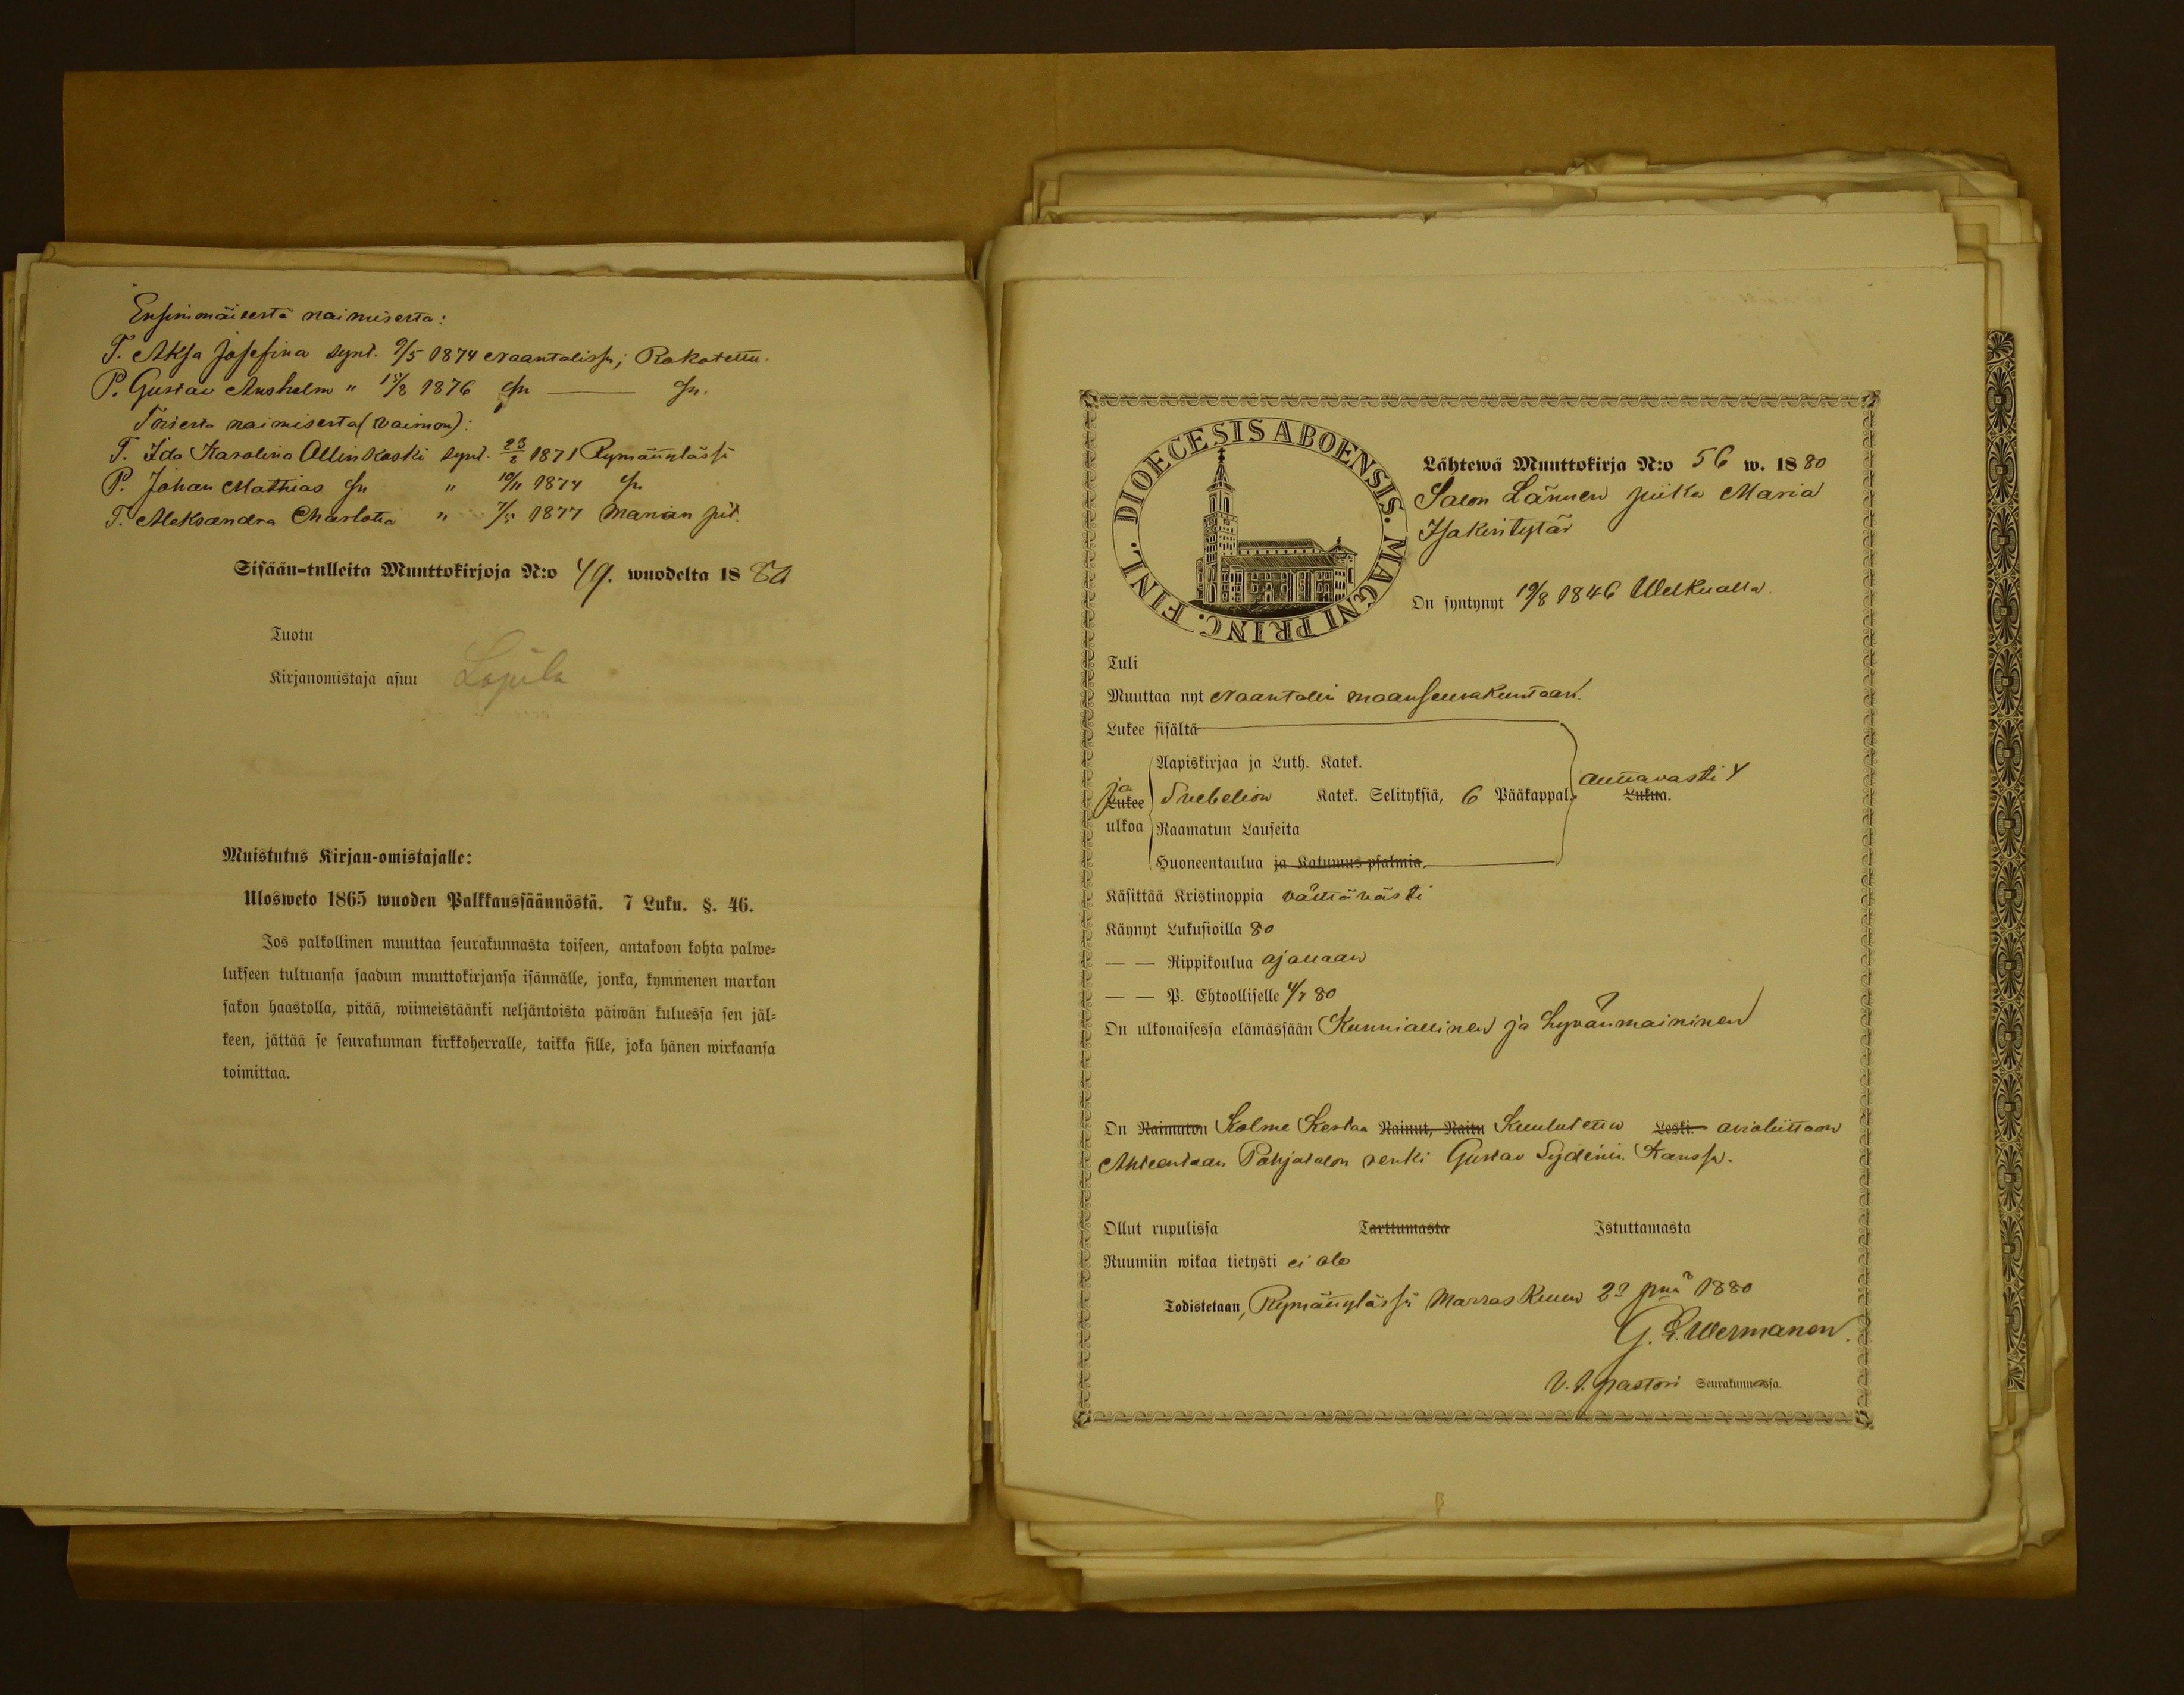 Ensimmäisestä naimisesta:
T. Aksa Josefina synt. 9/5 1874 Naantalissa; Rokotettu.
P. Gustav Anshelm " 15/8 1876 — 
Toisesta naimisesta (vaimon):
T. Ida Karolina Allinkoski synt. 1871 Rymättylässä
P. Johan Mathias " 10/11 1874
T. Aleksandra Charlotta " 7/5 1877 Marian pit.
Sisään-tulleita Muuttokirjoja N:o 49. wuodelta 1880
Tuotu
Kirjanomistaja asuu
Muistutus Kirjan-omistajalle:
Ulosweto 1865 wuoden Palkkaussäännöstä. 7 Luku. §. 46.
Jos palkollinen muuttaa seurakunnasta toiseen, antakoon kohta palwe-
lukseen tultuansa saadun muuttokirjansa isännälle, jonka, kymmenen markan
sakon haastolla, pitää, wiimeistäänki neljäntoista päiwän kuluessa sen jäl-
keen, jättää se seurakunnan kirkkoherralle, taikka sille, joka hänen wirkaansa
toimittaa.
DIOECESIS ABOENSIS. MAGNI PRINC. FINL.
Lähtewä Muuttokirja N:o 56 w. 1880
Salon Lännen piika Maria
Isakintytär
On syntynyt 19/8 1846 Welkualla.
Tuli
Muuttaa nyt Naantalin maanseurakuntaan.
Lukee sisältä
Aapiskirjaa ja Luth. Katek.
ja
Lukee Svebelion Katek. Selityksiä, 6 Pääkappal. auttavasti Lukua.
ulkoa Raamatun Lauseita
Huoneentaulua ja Katumus-psalmia.
Käsittää Kristinoppia välttävästi
Käynyt Lukusioilla 80
— — Rippikoulua ajallaan
— — P. Ehtoolliselle 4/7 80
On ulkonaisessa elämässään Kunniallinen ja hyvänmaininen
On Naimaton Kolme Kertaa Nainut, Naitu Kuulutettu Leski. avioliittoon
Pohjatalon renki Gustav Sydénin Kanssa.
Ollut rupulissa Tarttumasta Istuttamasta
Ruumiin wikaa tietysti ei ole
Todistetaan, Rymättylässä Marraskuun 22 pnä 1880
G. L. Wermanen.
V.t. pastori Seurakunnassa.